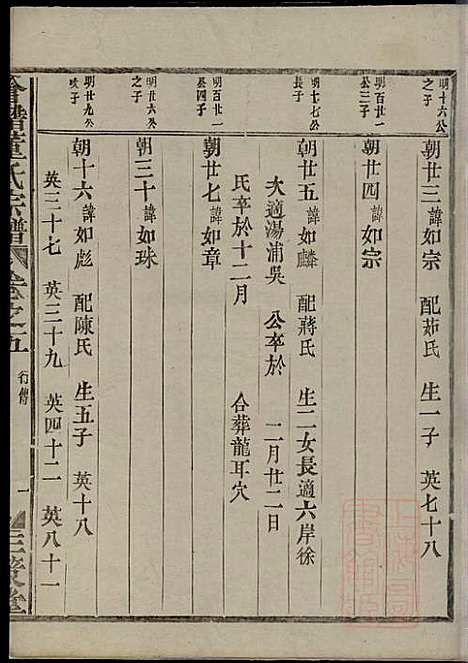 明十六公之子
朝廿三諱如宗 配茹氏 生一子 英七十八
明百廿一公三子
朝廿四諱如宗
明十七公長子
朝廿五諱如麟 配蔣氏 生二女長適六岸徐
次適湯浦吳 公卒於 二月廿二日
氏卒於十二月 合葬龍耳穴
明百廿一公四子
朝廿七諱如章
明廿六公之子
朝三十諱如珠
明廿九公次子
朝十六諱如彪 配陳氏 生五子 英十八
英三十七 英三十九 英四十二 英八十一
會稽董氏宗譜 卷之五 行傳 一 三策堂